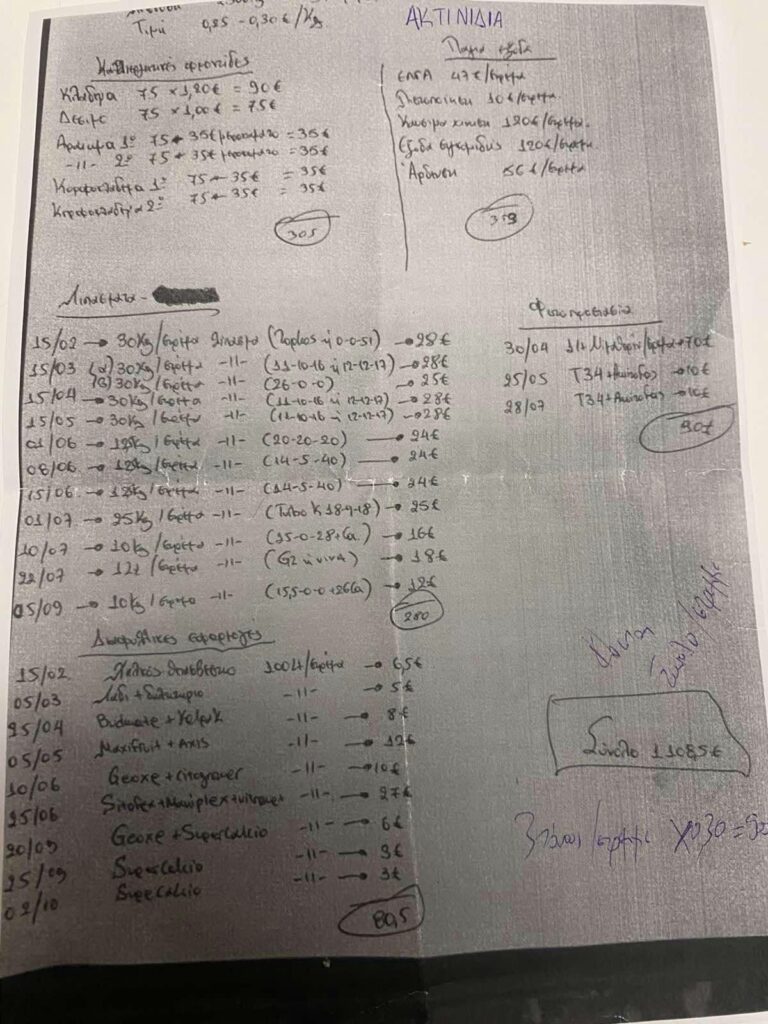 Τιμή 0,25 - 0,30 €/Kg
ΑΚΤΙΝΙΔΙΑ
Καλλιεργητικές φροντίδες
Κλάδεμα 75 × 1,20€ = 90€
Δέσιμο 75 × 1,00€ = 75€
Αραίωμα 1ο 75 ← 35€ μεροκάματο = 35€
-11- 2ο 75 ← 35€ μεροκάματο = 35€
Κορφολόγημα 1ο 75 ← 35€ = 35€
Κορφολόγημα 2ο 75 ← 35€ = 35€
305
Πάγια έξοδα
ΕΛΓΑ 47€/στρέμμα
Πιστοποίηση 10€/στρέμμα
Καύσιμα κίνηση 120€/στρέμμα.
Έξοδα συγκομιδής 120€/στρέμμα
Άρδευση €/στρέμμα
Λιπάσματα -
15/02 → 30Kg/στρέμμα λίπασμα ( ή 0-0-51) → 28€
15/03 (α) 30Kg/στρέμμα -11- (11-10-16 ή 12-12-17) → 28€
(β) 30Kg/στρέμμα -11- (26-0-0) → 25€
15/04 → 30Kg/στρέμμα -11- (11-10-16 ή 12-12-17) → 28€
15/05 → 30Kg/στρέμμα -11- (11-10-16 ή 12-12-17) → 28€
01/06 → 12Kg/στρέμμα -11- (20-20-20) → 24€
08/06 → 12Kg/στρέμμα -11- (14-5-40) → 24€
15/06 → 12Kg/στρέμμα -11- (14-5-40) → 24€
01/07 → 25Kg/στρέμμα -11- (Turbo K 18-9-18) → 25€
10/07 → 10Kg/στρέμμα -11- (15-0-28+Ca) → 16€
22/07 → 1Lt/στρέμμα -11- (G2 ή viva) → 18€
05/09 → 10Kg/στρέμμα -11- (15,5-0-0+26Ca) → 12€
280
Φυτοπροστασία
30/04 1Lt /στρέμμα → 70€
25/05 T34+ → 10€
28/07 T34+ → 10€
90€
Διαφυλλικές εφαρμογές
15/02 Χαλκός 100Lt/στρέμμα → 6,5€
05/03 Λάδι + -11- → 5€
25/04 Budmate + Kelpak -11- → 8€
05/05 Maxifruit + Axis -11- → 12€
10/06 Geoxe + -11- → 10€
25/06 Sitofex + Maxiplex + -11- → 27€
20/09 Geoxe + Supercalcio -11- → 6€
25/09 Supercalcio -11- → 3€
02/10 Supercalcio -11- → 3€
80,5
Σύνολο/στρέμμα
Σύνολο 1108,5€
3 τόνοι/στρέμμα × 0,30 = 90